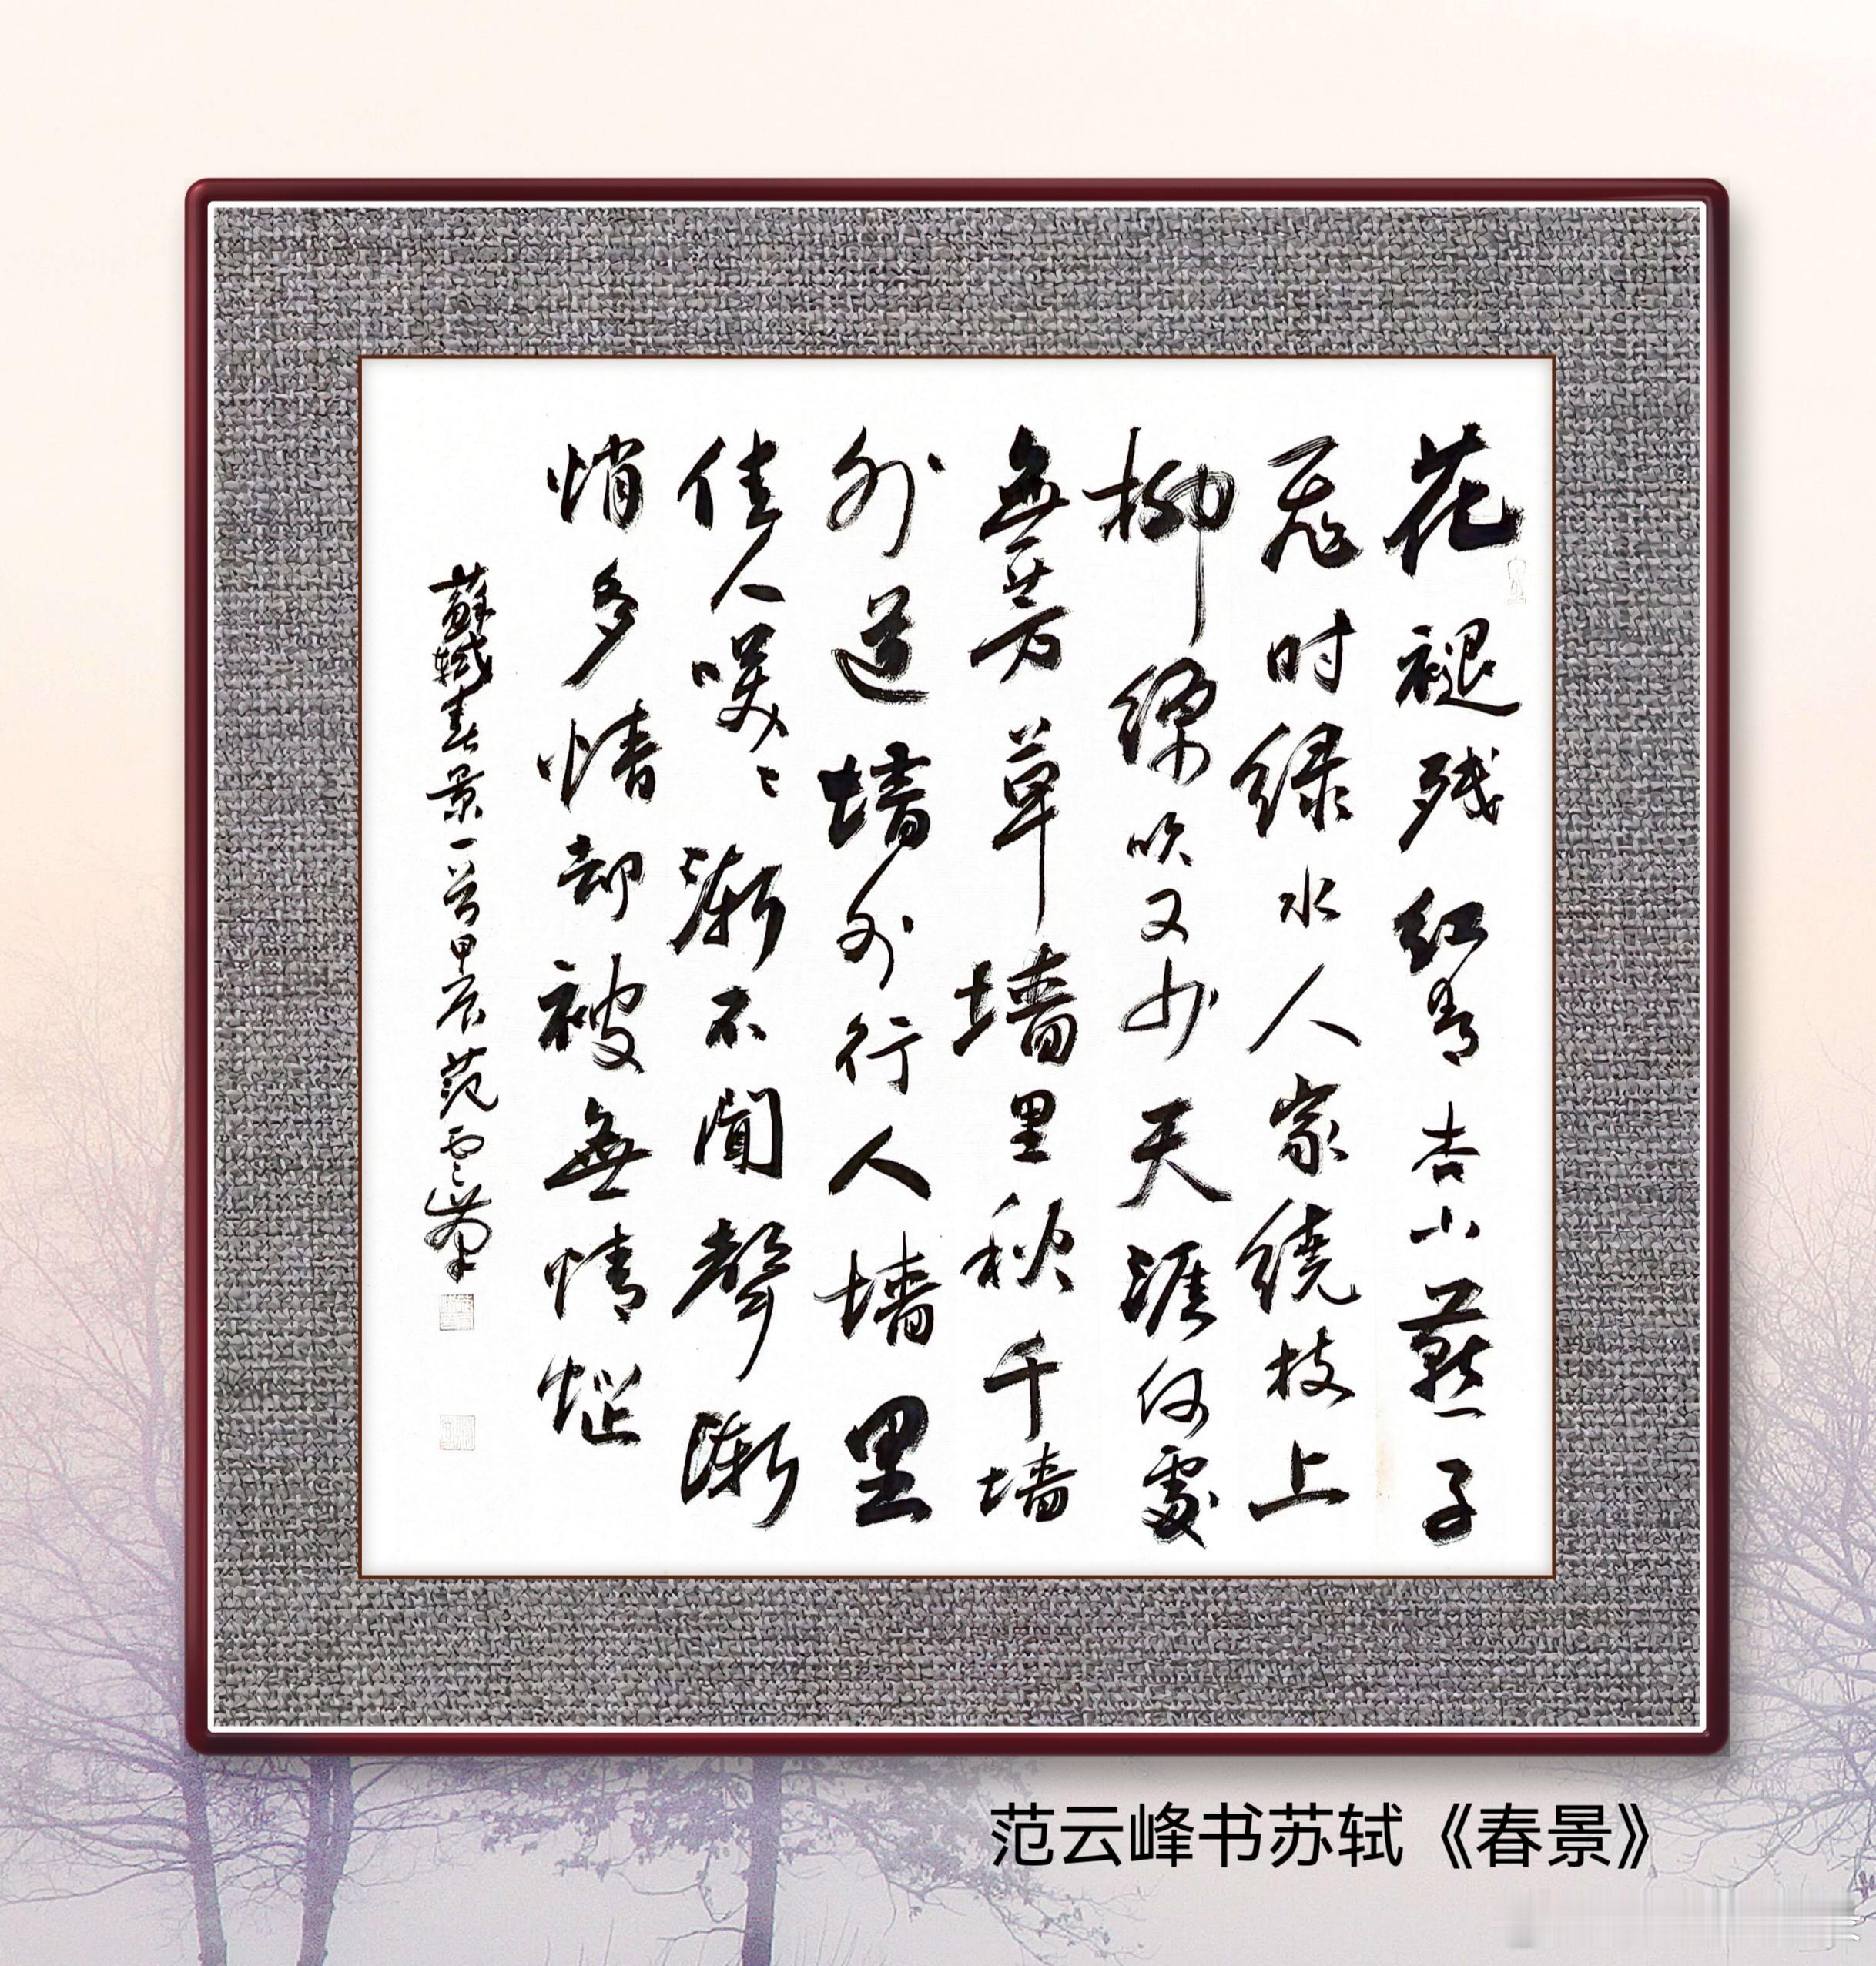 花褪残红青杏小燕子
飛时绿水人家绕枝上
柳绵吹又少天涯何處
無芳草墙里秋千墙
外道墙外行人墙里
佳人咲〻渐不闻聲渐
悄多情却被無情惱
蘇軾春景一首甲辰范雲峯
范云峰书苏轼《春景》